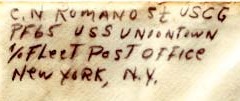 C.N ROMANO S 1/C USCG
PF65 USS UNIONTOWN
c/o Fleet Post Office
New York, N.Y.